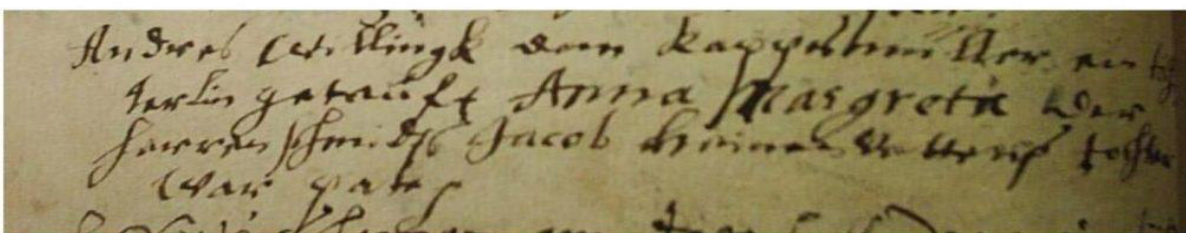 Andres Willingk dem Kappesmüller ein töch
terlin getauft Anna Margreta der
Herren schmidts Jacob tochter
war pate